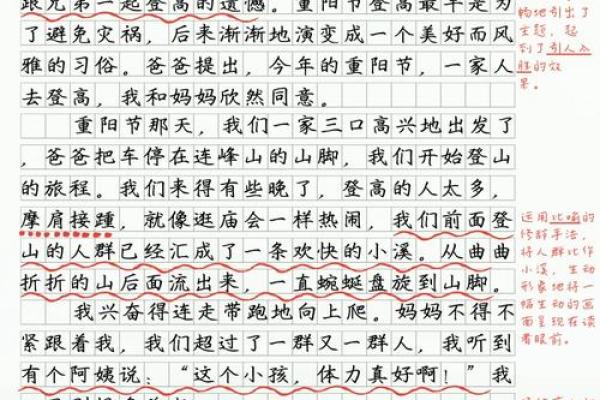 跟兄弟一起登高的遗憾。重阳节登高最早是为
了避免灾祸，后来渐渐地演变成一个美好而风
雅的习俗。爸爸提出，今年的重阳节，一家人
去登高，我和妈妈欣然同意。
重阳节那天，我们一家三口高兴地出发了
，爸爸把车停在连峰山的山脚，我们开始登山
的旅程。我们来得有些晚了，登高的人太多，
摩肩接踵，就像逛庙会一样热闹，我们前面登
山的人群已经汇成了一条欢快的小溪。从曲曲
折折的山后面流出来，一直蜿蜒盘旋到山脚。
我兴奋得连走带跑地向上爬。妈妈不得不
紧跟着我，我们超过了一群又一群人，我听到
有个阿姨说：“这个小孩，体力真好啊！”我
畅地引出了
主题，起
到了引人入
胜的效
果。
运用比喻的
修辞手法，
将人群比作
小溪，生动
形象地将一
幅生动的画
面呈现在读
者眼前。